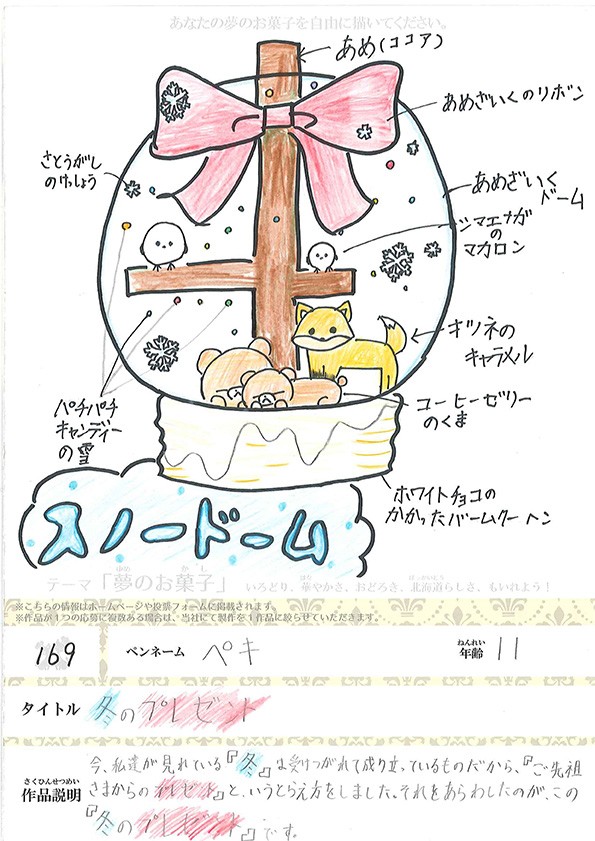 あなたの夢のお菓子を自由に描いてください。
あめ(ココア)
あめざいくのリボン
さとうがし
のけっしょう
あめざいく
ドーム
シマエナガ
の
マカロン
キツネの
キャラメル
パチパチ
キャンディー
の雪
コーヒーゼリー
のくま
ホワイトチョコの
かかったバームクーヘン
スノードーム
テーマ「夢のお菓子」 いろどり、華やかさ、おどろき、北海道らしさ、もいれよう!
※こちらの情報はホームページや投票フォームに掲載されます。
※作品が1つの応募に複数ある場合は、当社にて製作を1作品に絞らせていただきます。
169 ペンネーム ペキ 年齢 11
タイトル 冬のプレゼント
作品説明
今、私達が見れている『冬』は受けつがれて成り立っているものだから、『ご先祖
さまからのプレゼント』と、いうとらえ方をしました。それをあらわしたのが、この
『冬のプレゼント』です。